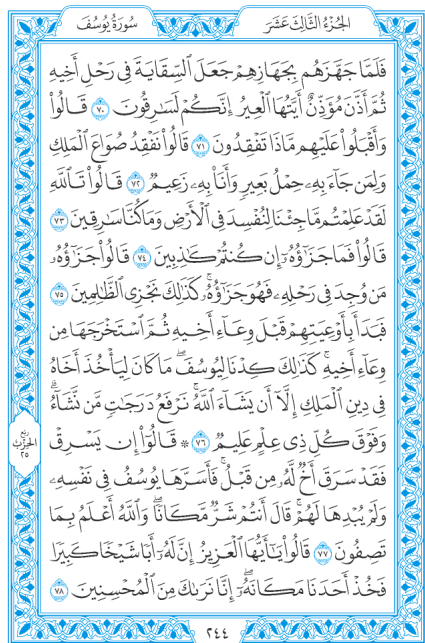 الجُزْءُ الثَّالِثَ عَشَرَ
سُورَةُ يُوسُفَ
فَلَمَّا جَهَّزَهُم بِجَهَازِهِمْ جَعَلَ ٱلسِّقَايَةَ فِى رَحْلِ أَخِيهِ
ثُمَّ أَذَّنَ مُؤَذِّنٌ أَيَّتُهَا ٱلْعِيرُ إِنَّكُمْ لَسَٰرِقُونَ ٧٠ قَالُوا۟
وَأَقْبَلُوا۟ عَلَيْهِم مَّاذَا تَفْقِدُونَ ٧١ قَالُوا۟ نَفْقِدُ صُوَاعَ ٱلْمَلِكِ
وَلِمَن جَآءَ بِهِۦ حِمْلُ بَعِيرٍ وَأَنَا۠ بِهِۦ زَعِيمٌ ٧٢ قَالُوا۟ تَٱللَّهِ
لَقَدْ عَلِمْتُم مَّا جِئْنَا لِنُفْسِدَ فِى ٱلْأَرْضِ وَمَا كُنَّا سَٰرِقِينَ ٧٣
قَالُوا۟ فَمَا جَزَٰٓؤُهُۥٓ إِن كُنتُمْ كَٰذِبِينَ ٧٤ قَالُوا۟ جَزَٰٓؤُهُۥ
مَن وُجِدَ فِى رَحْلِهِۦ فَهُوَ جَزَٰٓؤُهُۥ ۚ كَذَٰلِكَ نَجْزِى ٱلظَّٰلِمِينَ ٧٥
فَبَدَأَ بِأَوْعِيَتِهِمْ قَبْلَ وِعَآءِ أَخِيهِ ثُمَّ ٱسْتَخْرَجَهَا مِن
وِعَآءِ أَخِيهِ ۚ كَذَٰلِكَ كِدْنَا لِيُوسُفَ ۖ مَا كَانَ لِيَأْخُذَ أَخَاهُ
فِى دِينِ ٱلْمَلِكِ إِلَّآ أَن يَشَآءَ ٱللَّهُ ۚ نَرْفَعُ دَرَجَٰتٍ مَّن نَّشَآءُ ۗ
وَفَوْقَ كُلِّ ذِى عِلْمٍ عَلِيمٌ ٧٦ ۞ قَالُوٓا۟ إِن يَسْرِقْ
فَقَدْ سَرَقَ أَخٌ لَّهُۥ مِن قَبْلُ ۚ فَأَسَرَّهَا يُوسُفُ فِى نَفْسِهِۦ
وَلَمْ يُبْدِهَا لَهُمْ ۚ قَالَ أَنتُمْ شَرٌّ مَّكَانًا ۖ وَٱللَّهُ أَعْلَمُ بِمَا
تَصِفُونَ ٧٧ قَالُوا۟ يَٰٓأَيُّهَا ٱلْعَزِيزُ إِنَّ لَهُۥٓ أَبًا شَيْخًا كَبِيرًا
فَخُذْ أَحَدَنَا مَكَانَهُۥٓ ۖ إِنَّا نَرَىٰكَ مِنَ ٱلْمُحْسِنِينَ ٧٨
ربع
الحزب
٢٥
٢٤٤